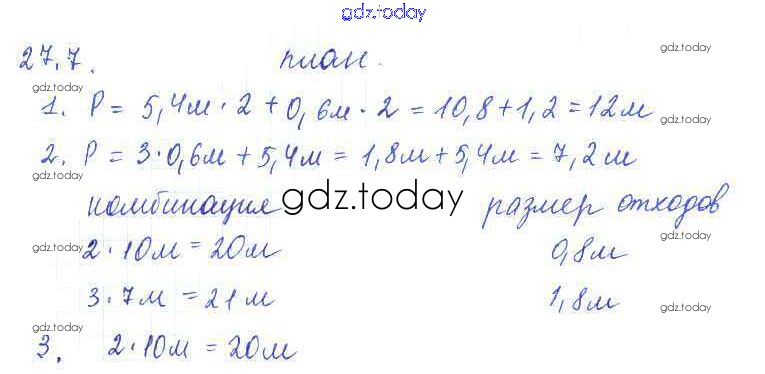 gdz.today
27.7. план. gdz.today
gdz.today
1. P = 5,4м · 2 + 0,6м · 2 = 10,8 + 1,2 = 12м
gdz.today
2. P = 3·0,6м + 5,4м = 1,8м + 5,4м = 7,2м
gdz.today
комбинация gdz.today размер отходов
gdz.today 2 · 10м = 20м 0,8м gdz.today
3 · 7м = 21м 1,8м gdz.today
gdz.today
3. 2·10м = 20м gdz.today